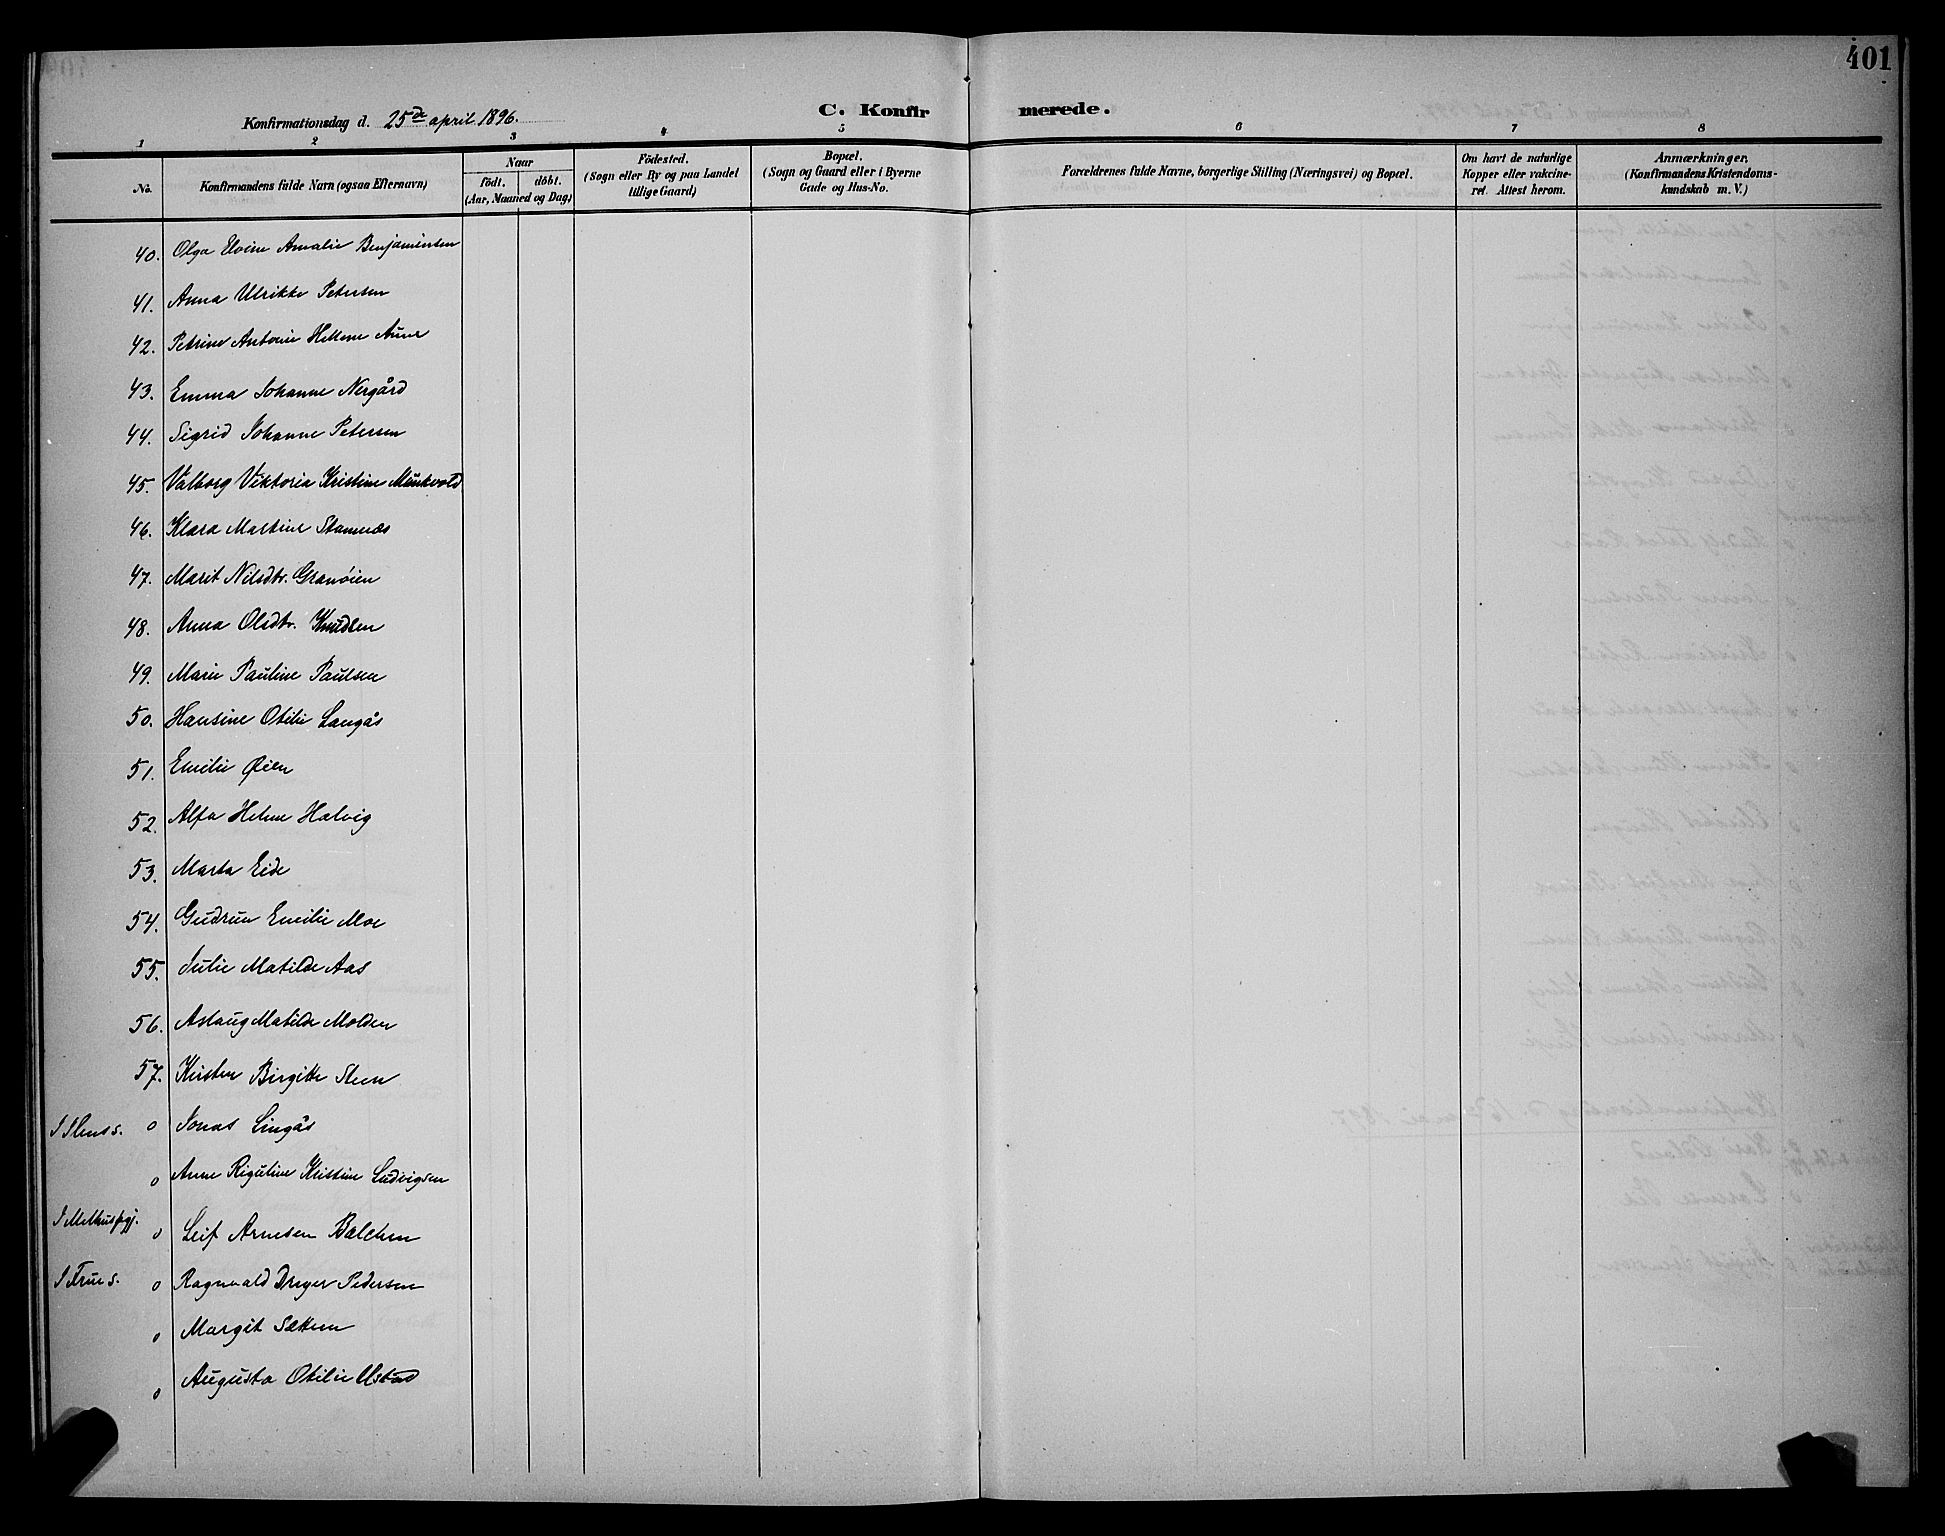 401
Konfirmationsdag d. 25de april 1896.
C. Konfirmerede.
1 2 3 4 5 6 7 8
No.
Konfirmandens fulde Navn (ogsaa Efternavn)
Naar
födt. döbt.
(Aar, Maaned og Dag)
Födested.
(Sogn eller By og paa Landet
tillige Gaard)
Bopæl.
(Sogn og Gaard eller i Byerne
Gade og Hus-No.
Forældrenes fulde Navne, borgerlige Stilling (Næringsvei) og Bopæl.
Om havt de naturlige
Kopper eller vakcine-
ret. Attest herom.
Anmærkninger.
(Konfirmandens Kristendoms-
kundskab m. V.)
40. Olga Elvine Amalie Benjaminsen
41. Anna Ulrikke Petersen
42. Petrine Antonie Hellene Aune
43. Emma Johanne Nergård
44. Sigrid Johanne Petersen
45. Valborg Viktoria Kristine Munkvold
46. Klara Martine Stamnæs
47. Marit Nilsdtr. Granöien
48. Anna Olsdtr. Knudsen
49. Marie Pauline Paulsen
50. Hansine Otilie Langås
51. Emilie Øien
52. Alfa Helene Halvig
53. Marta Eide
54. Gudrun Emilie Moe
55. Julie Matilde Aas
56. Aslaug Matilde Molden
57. Kirsten Birgitte Steen
I Ilens s. o Jonas Lingås
o Anne Rigutine Kristine Ludvigsen
I Melhus prgj. o Leif Arnesen Balchen
I Frue s. o Ragnvald Dreyer Pedersen
o Margit Sættem
o Augusta Otilie Ustad